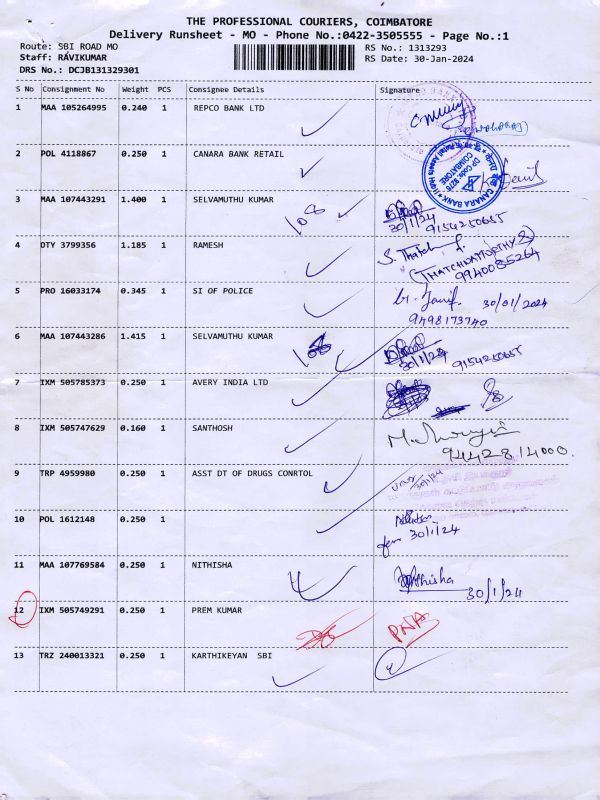 THE PROFESSIONAL COURIERS, COIMBATORE
Delivery Runsheet - MO - Phone No.:0422-3505555 - Page No.:1
Route: SBI ROAD MO
RS No.: 1313293
Staff: RAVIKUMAR
RS Date: 30-Jan-2024
DRS No.: DCJB131329301
S No Consignment No Weight PCS Consignee Details Signature
1 MAA 105264995 0.240 1 REPCO BANK LTD
2 POL 4118867 0.250 1 CANARA BANK RETAIL
CANARA BANK
DP Code: 9276
COIMBATORE
3 MAA 107443291 1.400 1 SELVAMUTHU KUMAR
30/1/24
9154250655
4 DTY 3799356 1.185 1 RAMESH
9940085264
5 PRO 16033174 0.345 1 SI OF POLICE
30/01/2024
9498173740
6 MAA 107443286 1.415 1 SELVAMUTHU KUMAR
30/1/24
9154250655
7 IXM 505785373 0.250 1 AVERY INDIA LTD
8 IXM 505747629 0.160 1 SANTHOSH
9442814000.
9 TRP 4959980 0.250 1 ASST DT OF DRUGS CONRTOL
30/1/24
10 POL 1612148 0.250 1
30/1/24
11 MAA 107769584 0.250 1 NITHISHA
30/1/24
12 IXM 505749291 0.250 1 PREM KUMAR
PNA
13 TRZ 240013321 0.250 1 KARTHIKEYAN SBI